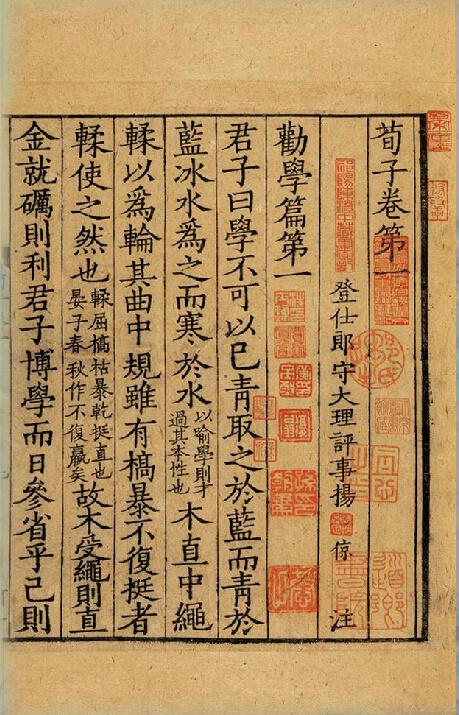 荀子卷第一
登仕郎守大理評事揚倞注
勸學篇第一
君子曰學不可以已青取之於藍而青於
藍冰水為之而寒於水以喻學則才過其本性也木直中繩
輮以爲輪其曲中規雖有槁暴不復挺者
輮使之然也輮屈槁枯暴乾挺直也晏子春秋作不復贏矣故木受繩則直
金就礪則利君子博學而日參省乎己則